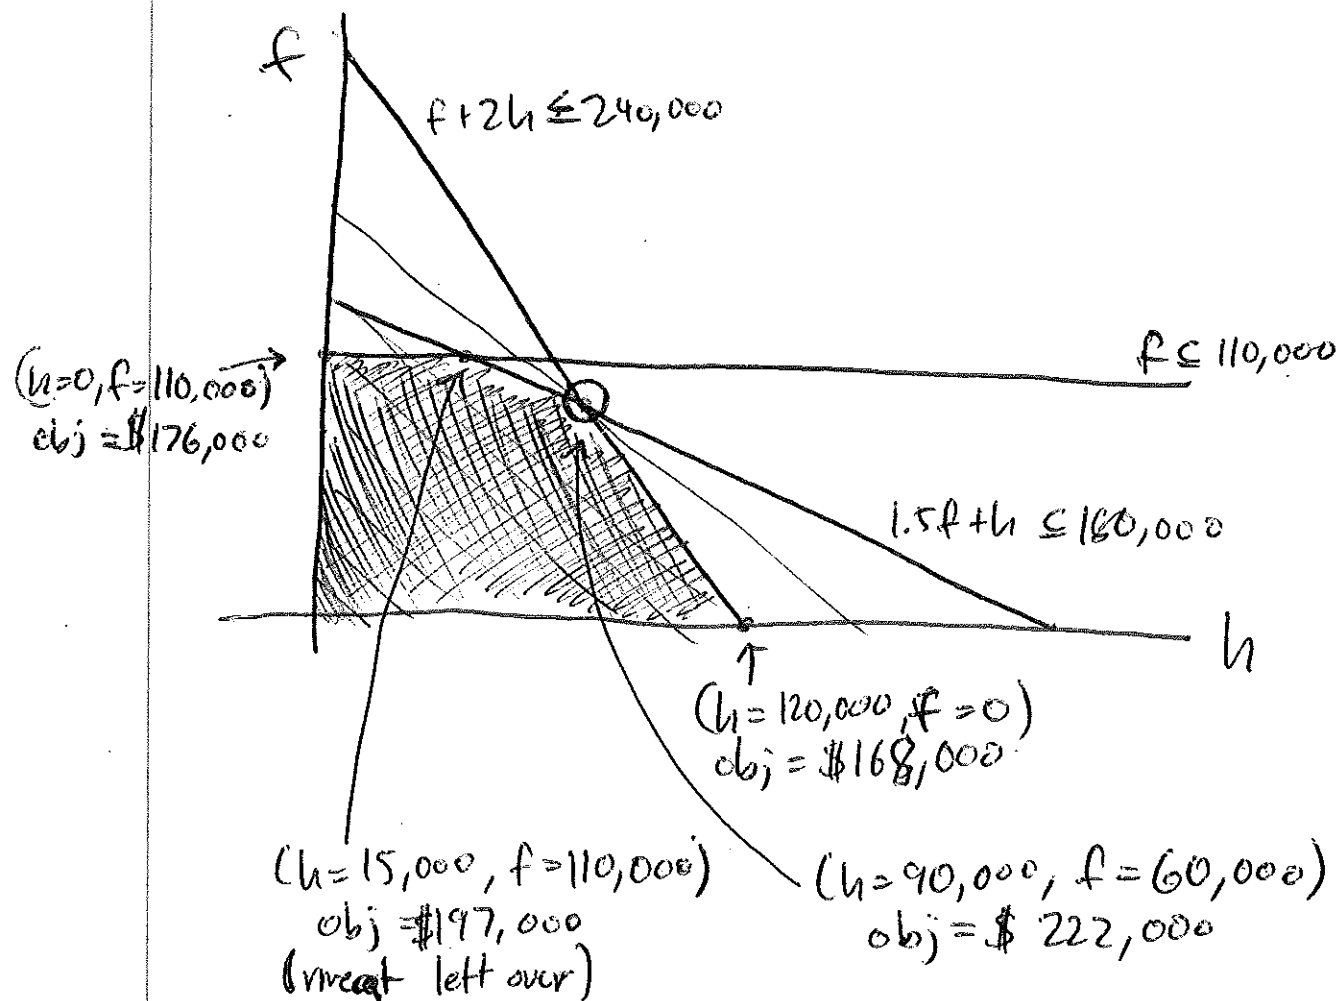 f
f+2h ≤ 240,000
f ≤ 110,000
(h=0, f=110,000)
obj = $176,000
1.5f+h ≤ 180,000
h
(h=120,000, f=0)
obj = $168,000
(h=15,000, f=110,000)
obj = $197,000
left over)
(h=90,000, f=60,000)
obj = $222,000